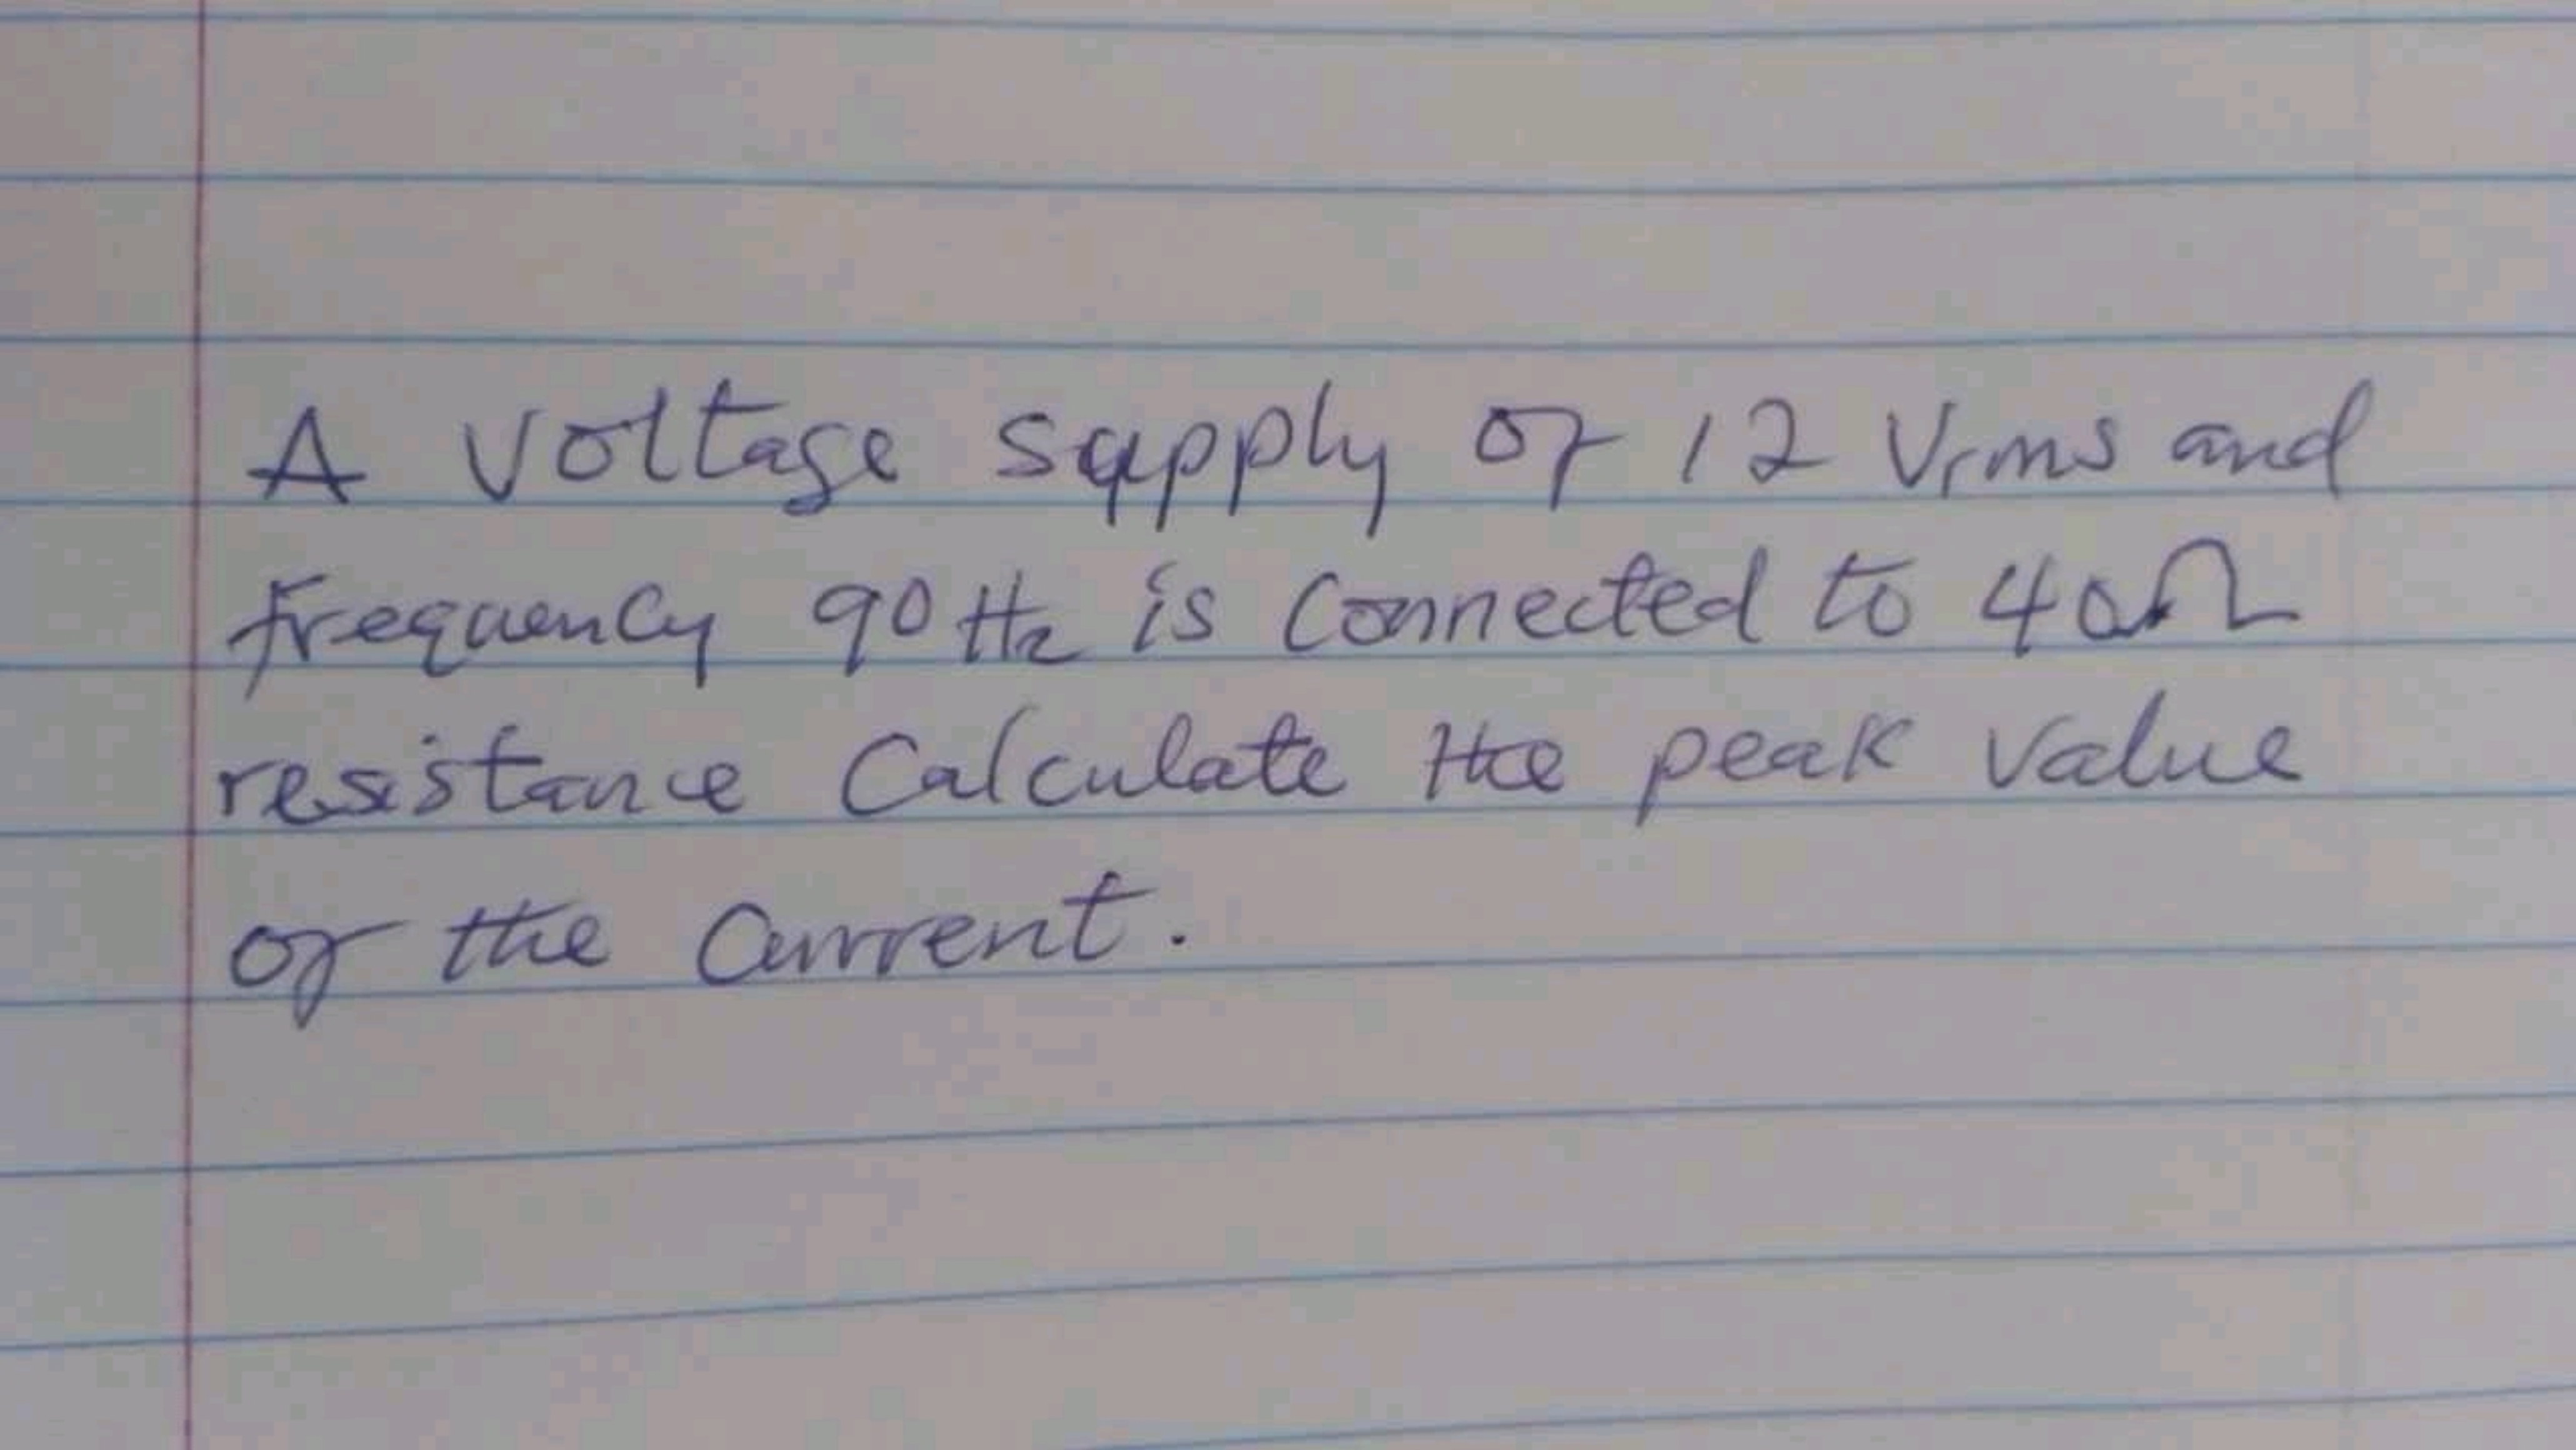 A voltage supply of 12 Vrms and
frequency 90 Hz is connected to 40Ω
resistance Calculate the peak value
of the Current.